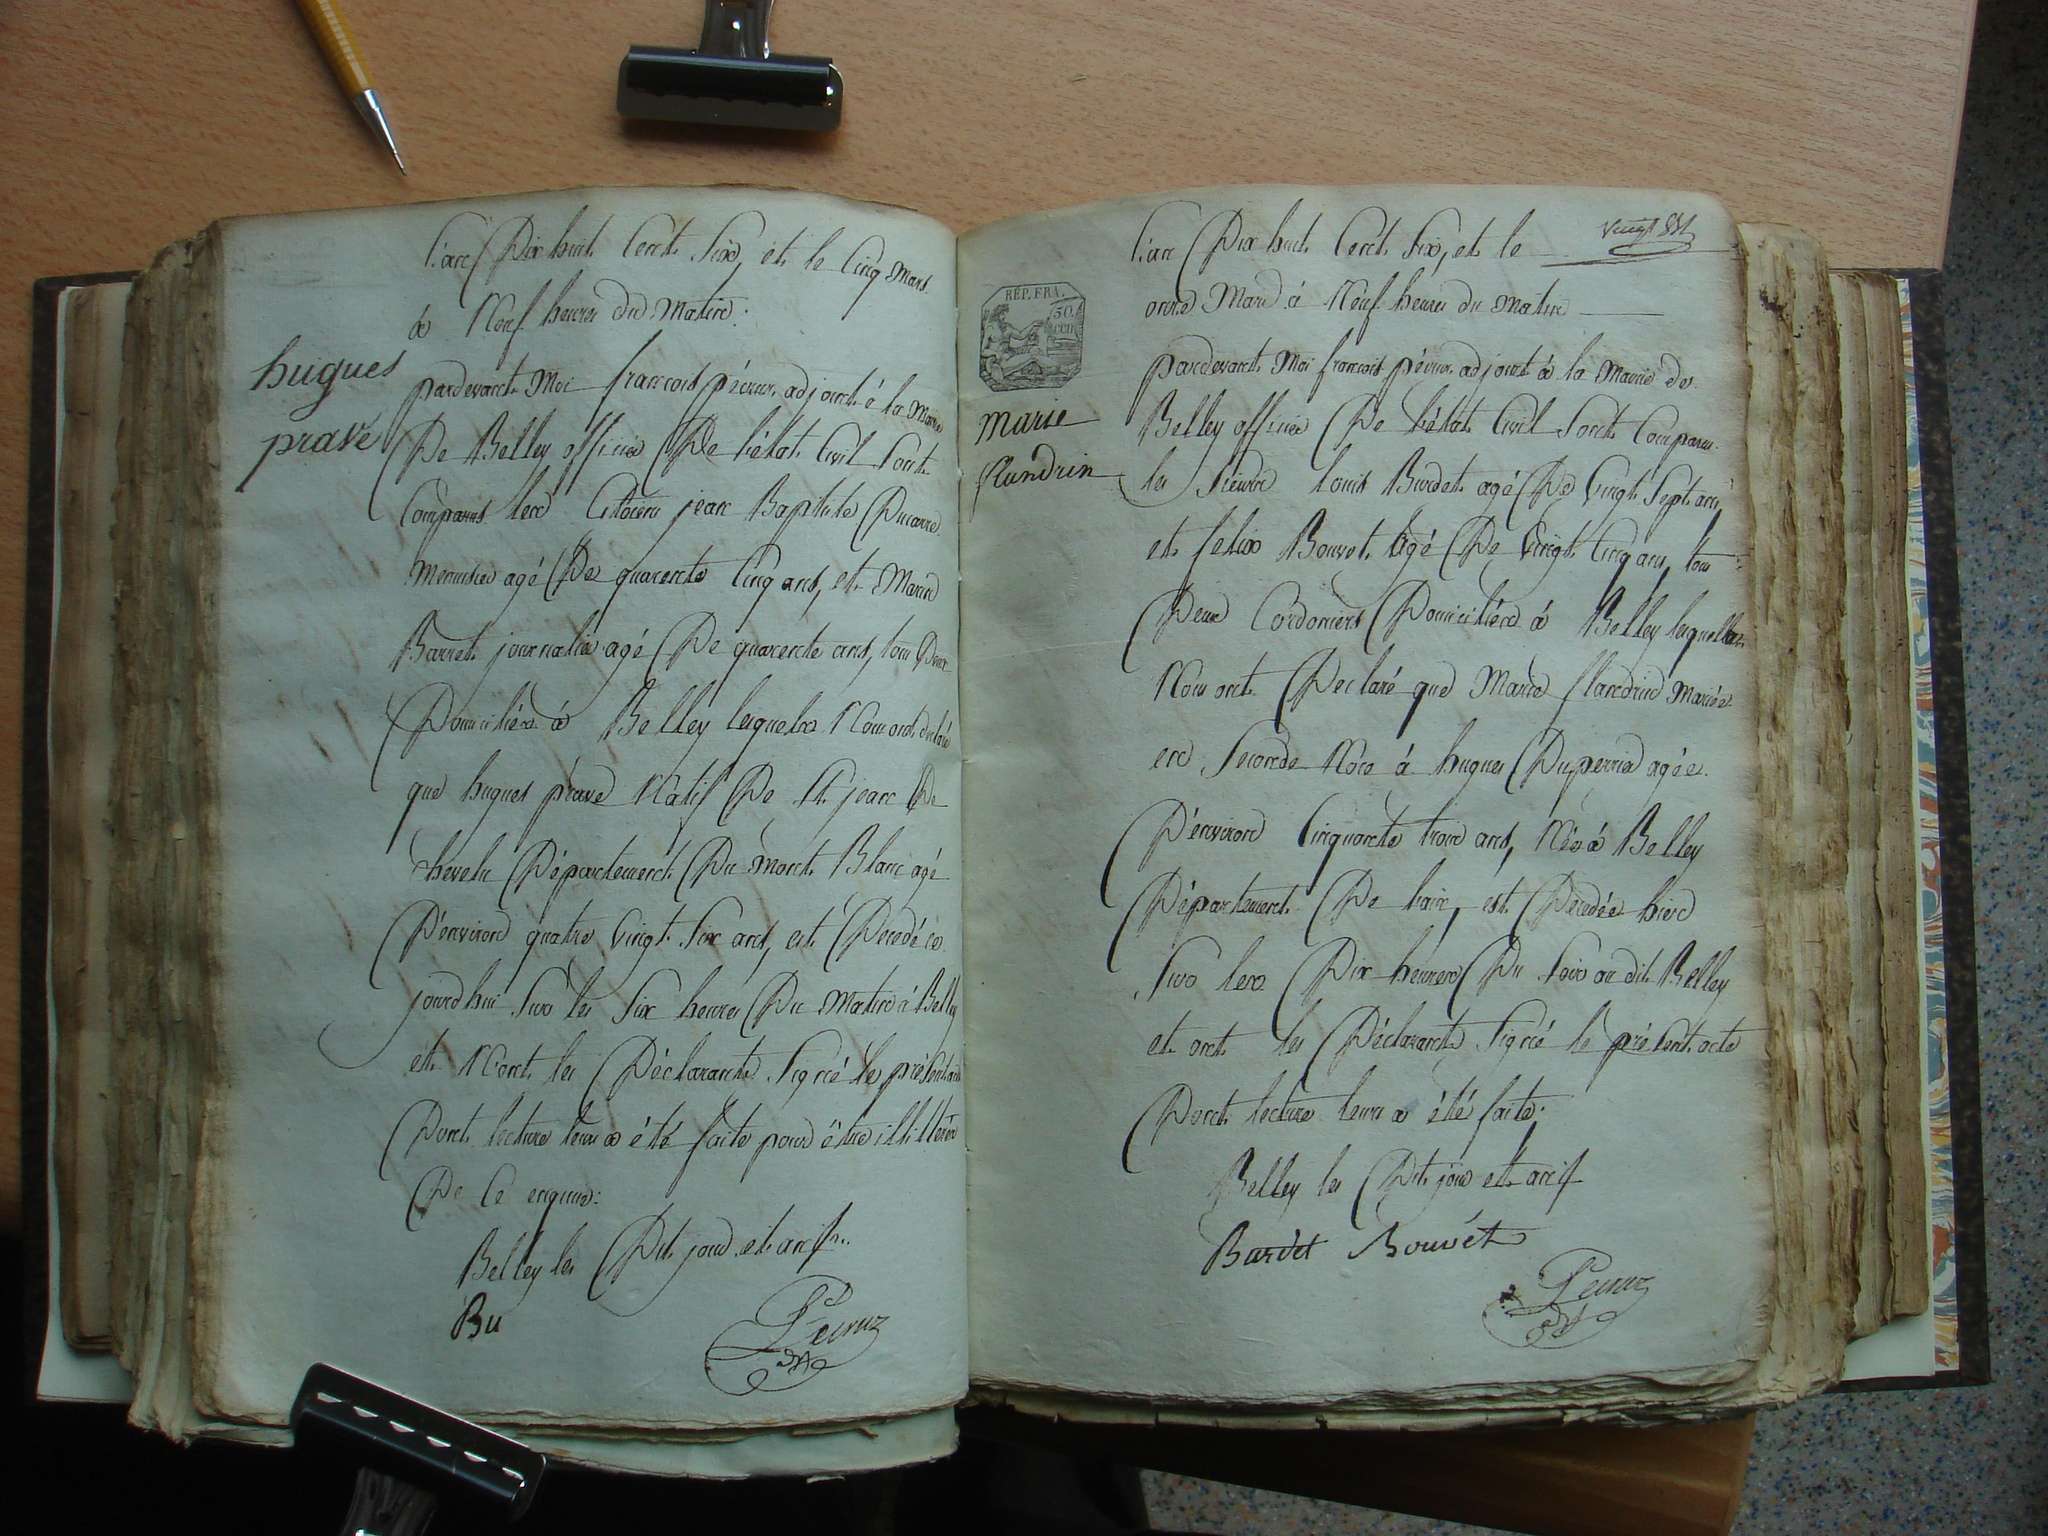 L'an Dix huit Cent Six, et le Cinq Mars
à Neuf heures du Matin.
hugues
pravé
pardevant Moi françois pécruz adjoint à la Mairie
De Belley officier De l'état Civil Sont
Comparus les Citoiens jean Baptiste Ducarre
Menuisier agé De quarente Cinq ans, et Marin
Barret journalier agé De quarente ans, tous Deux
Domiciliés à Belley lesquels Nous ont declaré
que hugues prave Natif De St. jean De
Chevelu Département Du Mont Blanc agé
D'environ quatre Vingt Six ans, est Décedé ce
jourd'hui Sur les Six heures Du Matin à Belley
et N'ont les Déclarants Signé le présent acte
Dont lecture leur a été faite pour être illitterés
De Ce enquis:
Belley les Dit jour et an if..
Bu
Pécruz
Vingt
L'an Dix huit Cent Six, et le
RÉP. FRA.
50
CEN
onze Mars à Neuf heures du Matin
marie
flandrin
pardevant Moi françois pécruz adjoint à la Mairie de
Belley officier De l'état Civil Sont Comparus
les Sieurs louis Burdet agé De Vingt Sept ans
et felix Bouvet Agé De Vingt Cinq ans, tous
Deux Cordoniers Domiciliés à Belley lesquels
Nous ont Declaré que Marie flandrin Mariée
en Seconde Noce à hugues Duperrier agée
D'environ Cinquante trois ans, Née à Belley
Département De l'ain, est Décedée hier
Sur les Dix heures Du Soir au dit Belley
et ont les Déclarants Signé le présent acte
Dont lecture leur a été faite.
Belley les Dit jour et an if
Burdet Bouvét
Pécruz